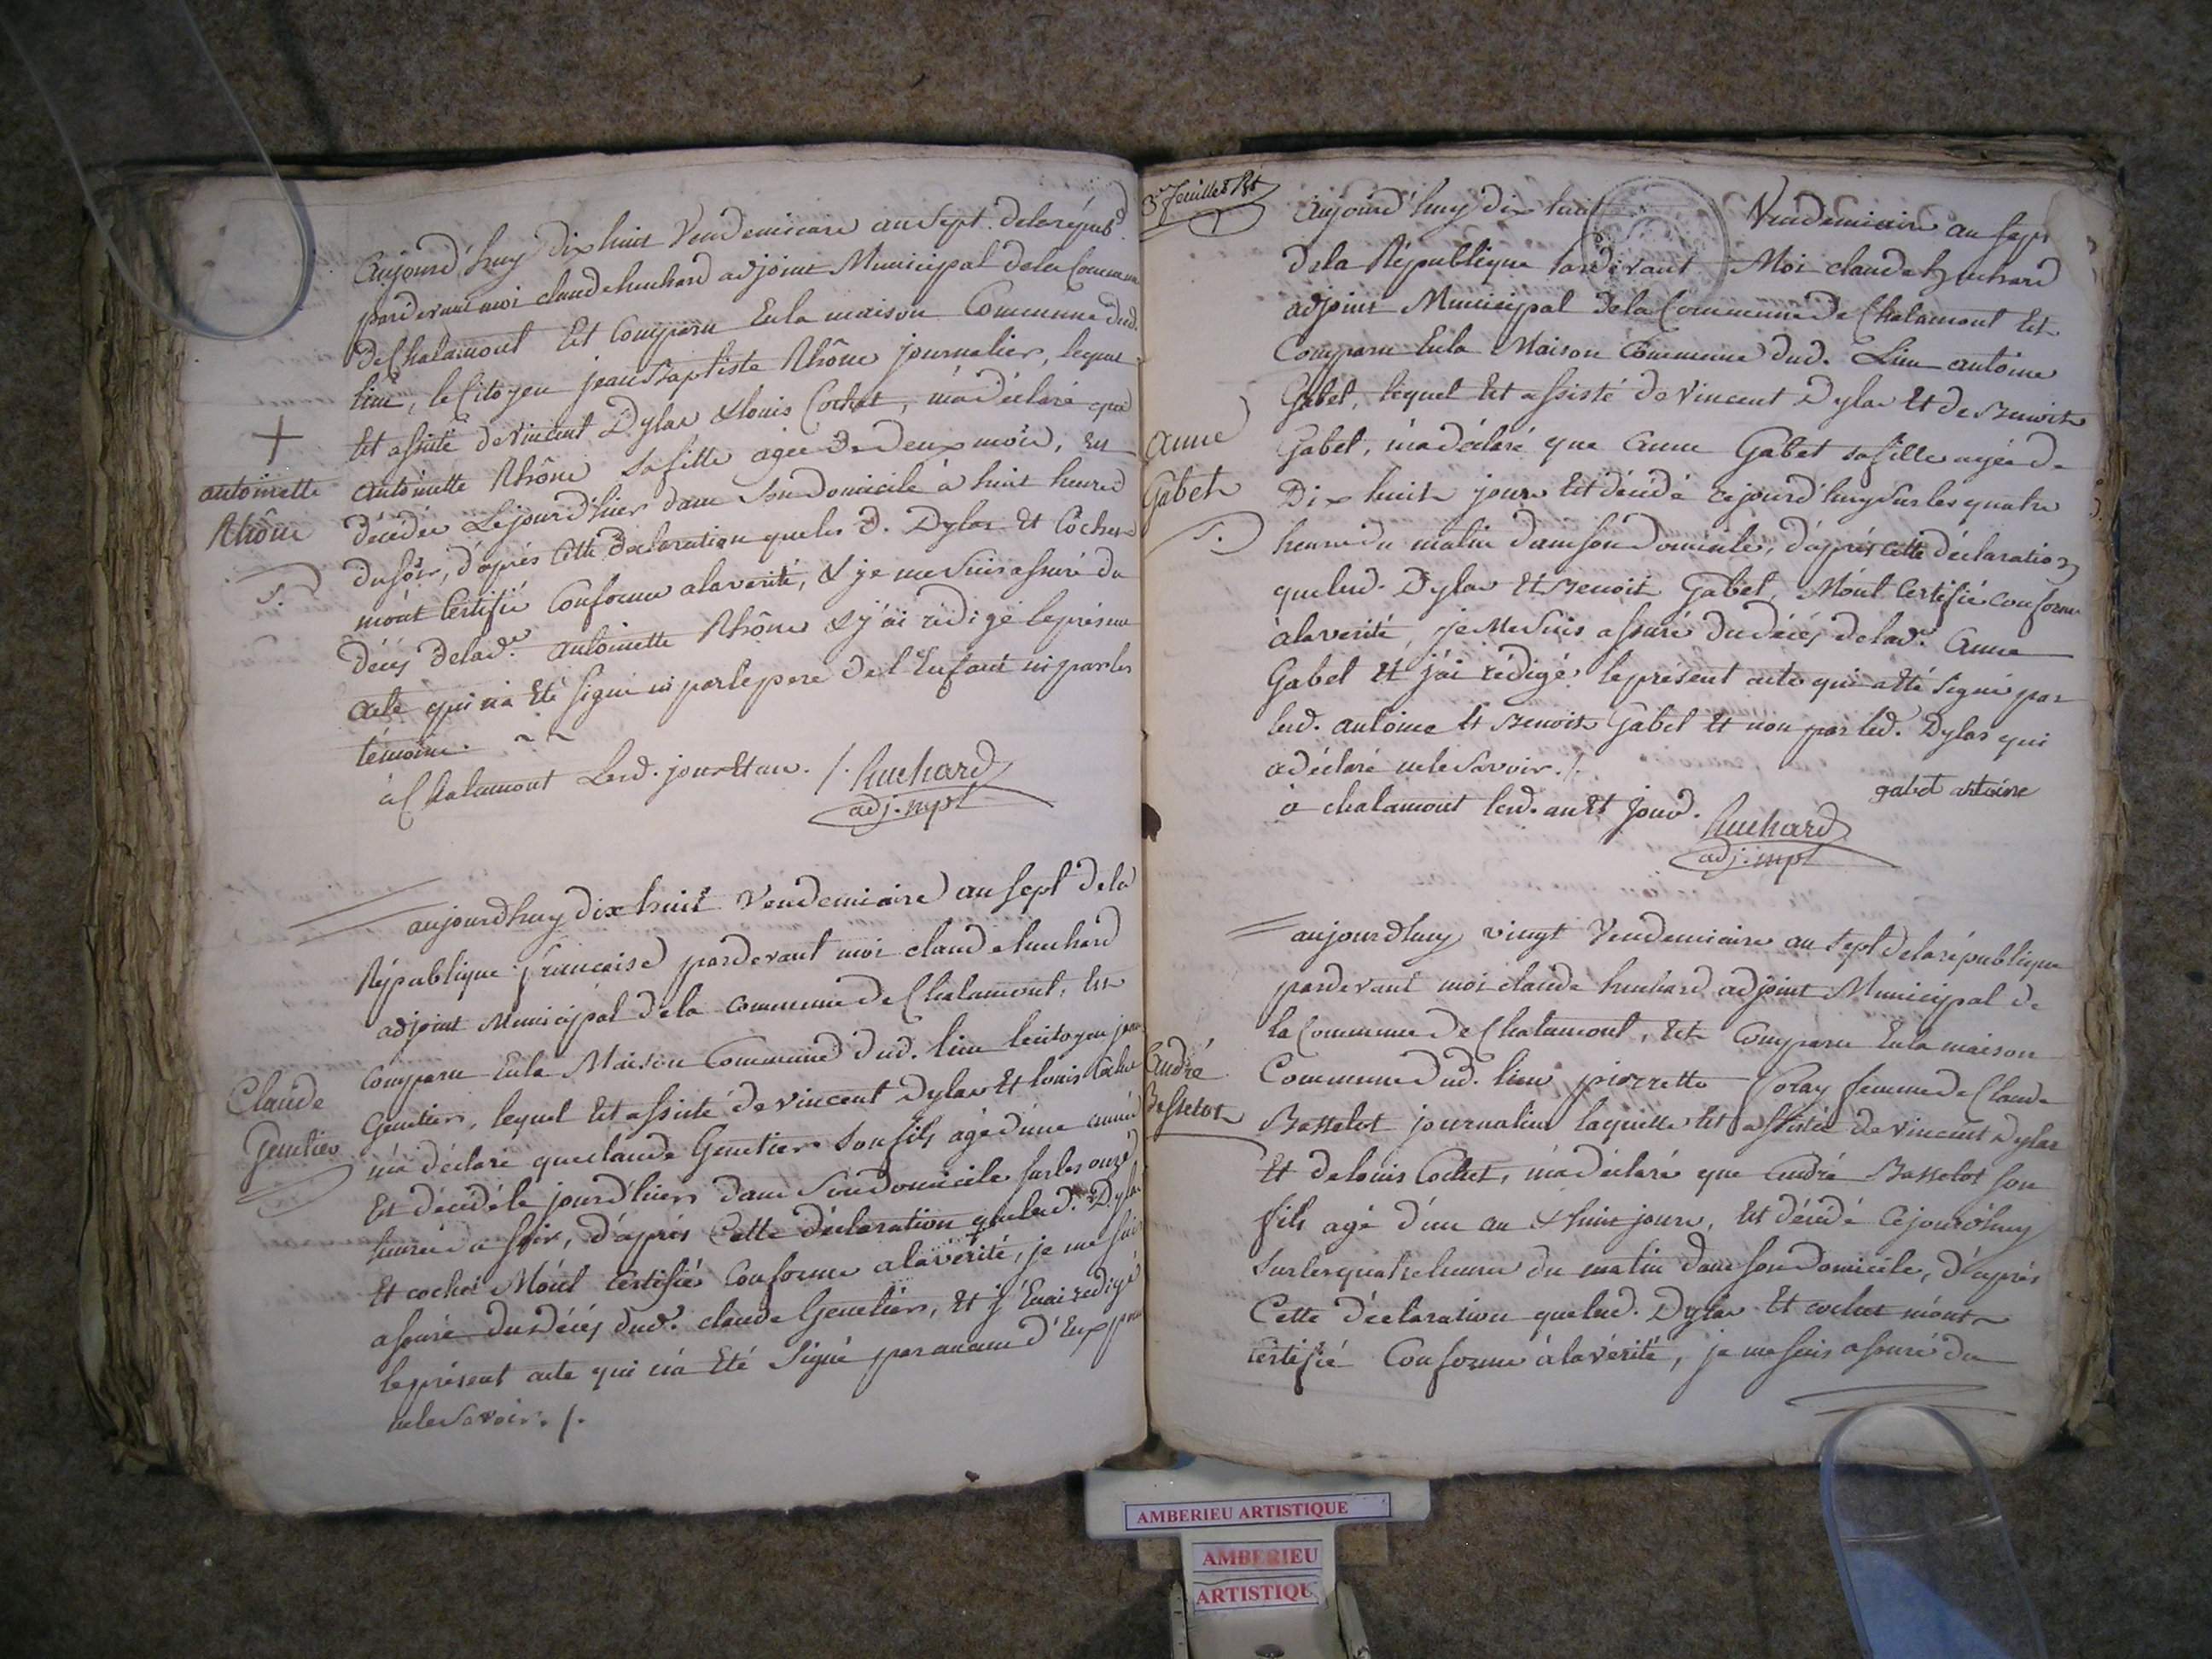 Aujourd'huy dix huit Vendemiaire an Sept. de la répub.
pardevant moi claude huchard adjoint Municipal de la Commune
de Chalamont Est Comparu En la maison Commune dud.
lieu, le Citoyen jean Baptiste Rhône journalier, lequel
Est assisté de Vincent Dylas & louis Cochet, m'a déclaré que
antoinette Rhône Sa fille agée de deux mois, Est
décédée Le jour d'hier dans Son domicile à huit heures
du soir, d'après Cette declaration que les d. Dylas Et Cochet
m'ont Certifié Conforme a la verité, & je me Suis assuré du
décés de lad.e antoinette Rhône & j'ai redigé le présent
acte qui n'a Eté Signé ni par le pere de l'Enfant ni par les
témoins. ~ ~
à Chalamont Lesd. jour Et an. /. huchard
adj. mpl
+
antoinette
Rhône
aujourdhuy dix huit Vendemiaire an Sept de la
République française pardevant moi claude huchard
adjoint Municipal de la Commune de Chalamont, Est
Comparu En la Maison Commune dud. lieu le citoyen jean
Genetier, lequel Est assisté de Vincent Dylas Et louis Cochet
m'a déclaré que claude Genetier Son fils agé d'une année
Est décédé le jour d'hier dans Son domicile sur les onze
heures du soir, d'après Cette déclaration que lesd. Dylas
Et cochet M'ont Certifié Conforme a la vérité, je me suis
assuré du décés dud. claude Genetier, Et j'En ai redigé
le présent acte qui n'a Eté Signé par aucun d'Eux pour
ne le Savoir. /.
Claude
Genetier
3e feuillet Rt
Aujourd'huy dix huit Vendemiaire an Sept
de la République pardevant Moi claude huchard
adjoint Municipal de la Commune de Chalamont Est
Comparu En la Maison Commune dud. Lieu antoine
Gabet, lequel Est assisté de Vincent Dylas Et de Benoit
Gabet, m'a déclaré que Anne Gabet sa fille agée de
Dix huit jours Est décédé cejourd'huy Sur les quatre
heures du matin dans son Domicile, d'après cette déclaration
que lesd. Dylas Et Benoit Gabet, M'ont Certifié conforme
à la verité, je Me Suis assuré du décés de lad.e Anne
Gabet Et j'ai rédigé le présent acte qui a Eté Signé par
lesd. antoine Et Benoit Gabet Et non par led. Dylas qui
a déclaré ne le Savoir. /.
gabet antoine
à chalamont lesd. an Et jour.
huchard
adj. mpl
Anne
Gabet
aujourdhuy vingt Vendemiaire an Sept de la république
pardevant moi claude huchard adjoint Municipal de
la Commune de Chalamont, Est Comparu En la maison
Commune dud. lieu pierrette Coray femme de Claude
Basselot journalier laquelle Est assistée de Vincent Dylas
Et de louis Cochet, m'a déclaré que André Basselot son
fils agé d'un an & huit jours, Est décédé cejourd'huy
Sur les quatre heures du matin dans son Domicile, d'après
Cette déclaration que lesd. Dylas Et cochet m'ont
certifié Conforme à la vérité, je me suis assuré du
André
Basselot
AMBERIEU ARTISTIQUE
AMBERIEU
ARTISTIQU